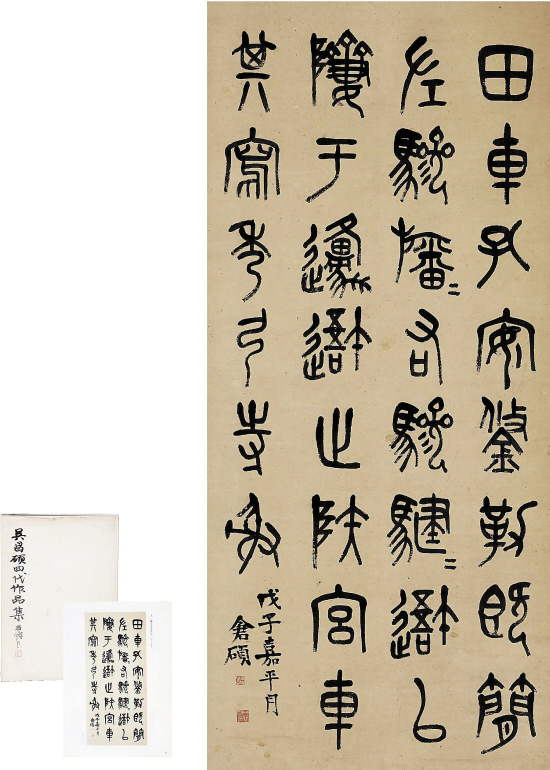 田車孔安鋚勒既簡
左驂旛=右驂騝=𨘇以
隮于邍𨘇止陝宮車
其寫秀弓寺射
戊子嘉平月
倉碩
吳昌碩四代作品集